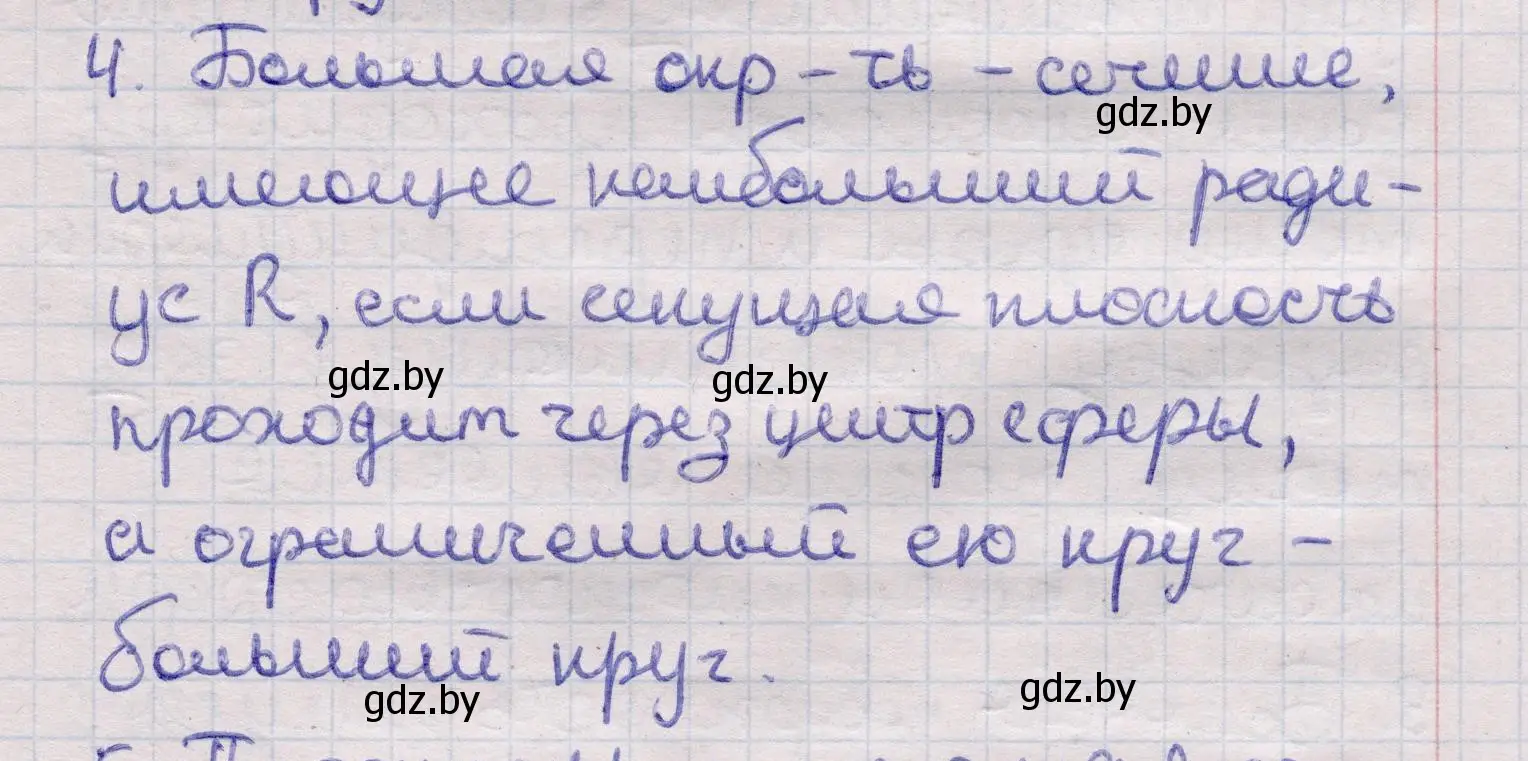 4. Большая окр-ть - сечение,
gdz.by
имеющее наибольший ради-
ус R, если секущая плоскость
gdz.by gdz.by
проходит через центр сферы,
а ограниченный ею круг -
большой круг.
gdz.by gdz.by